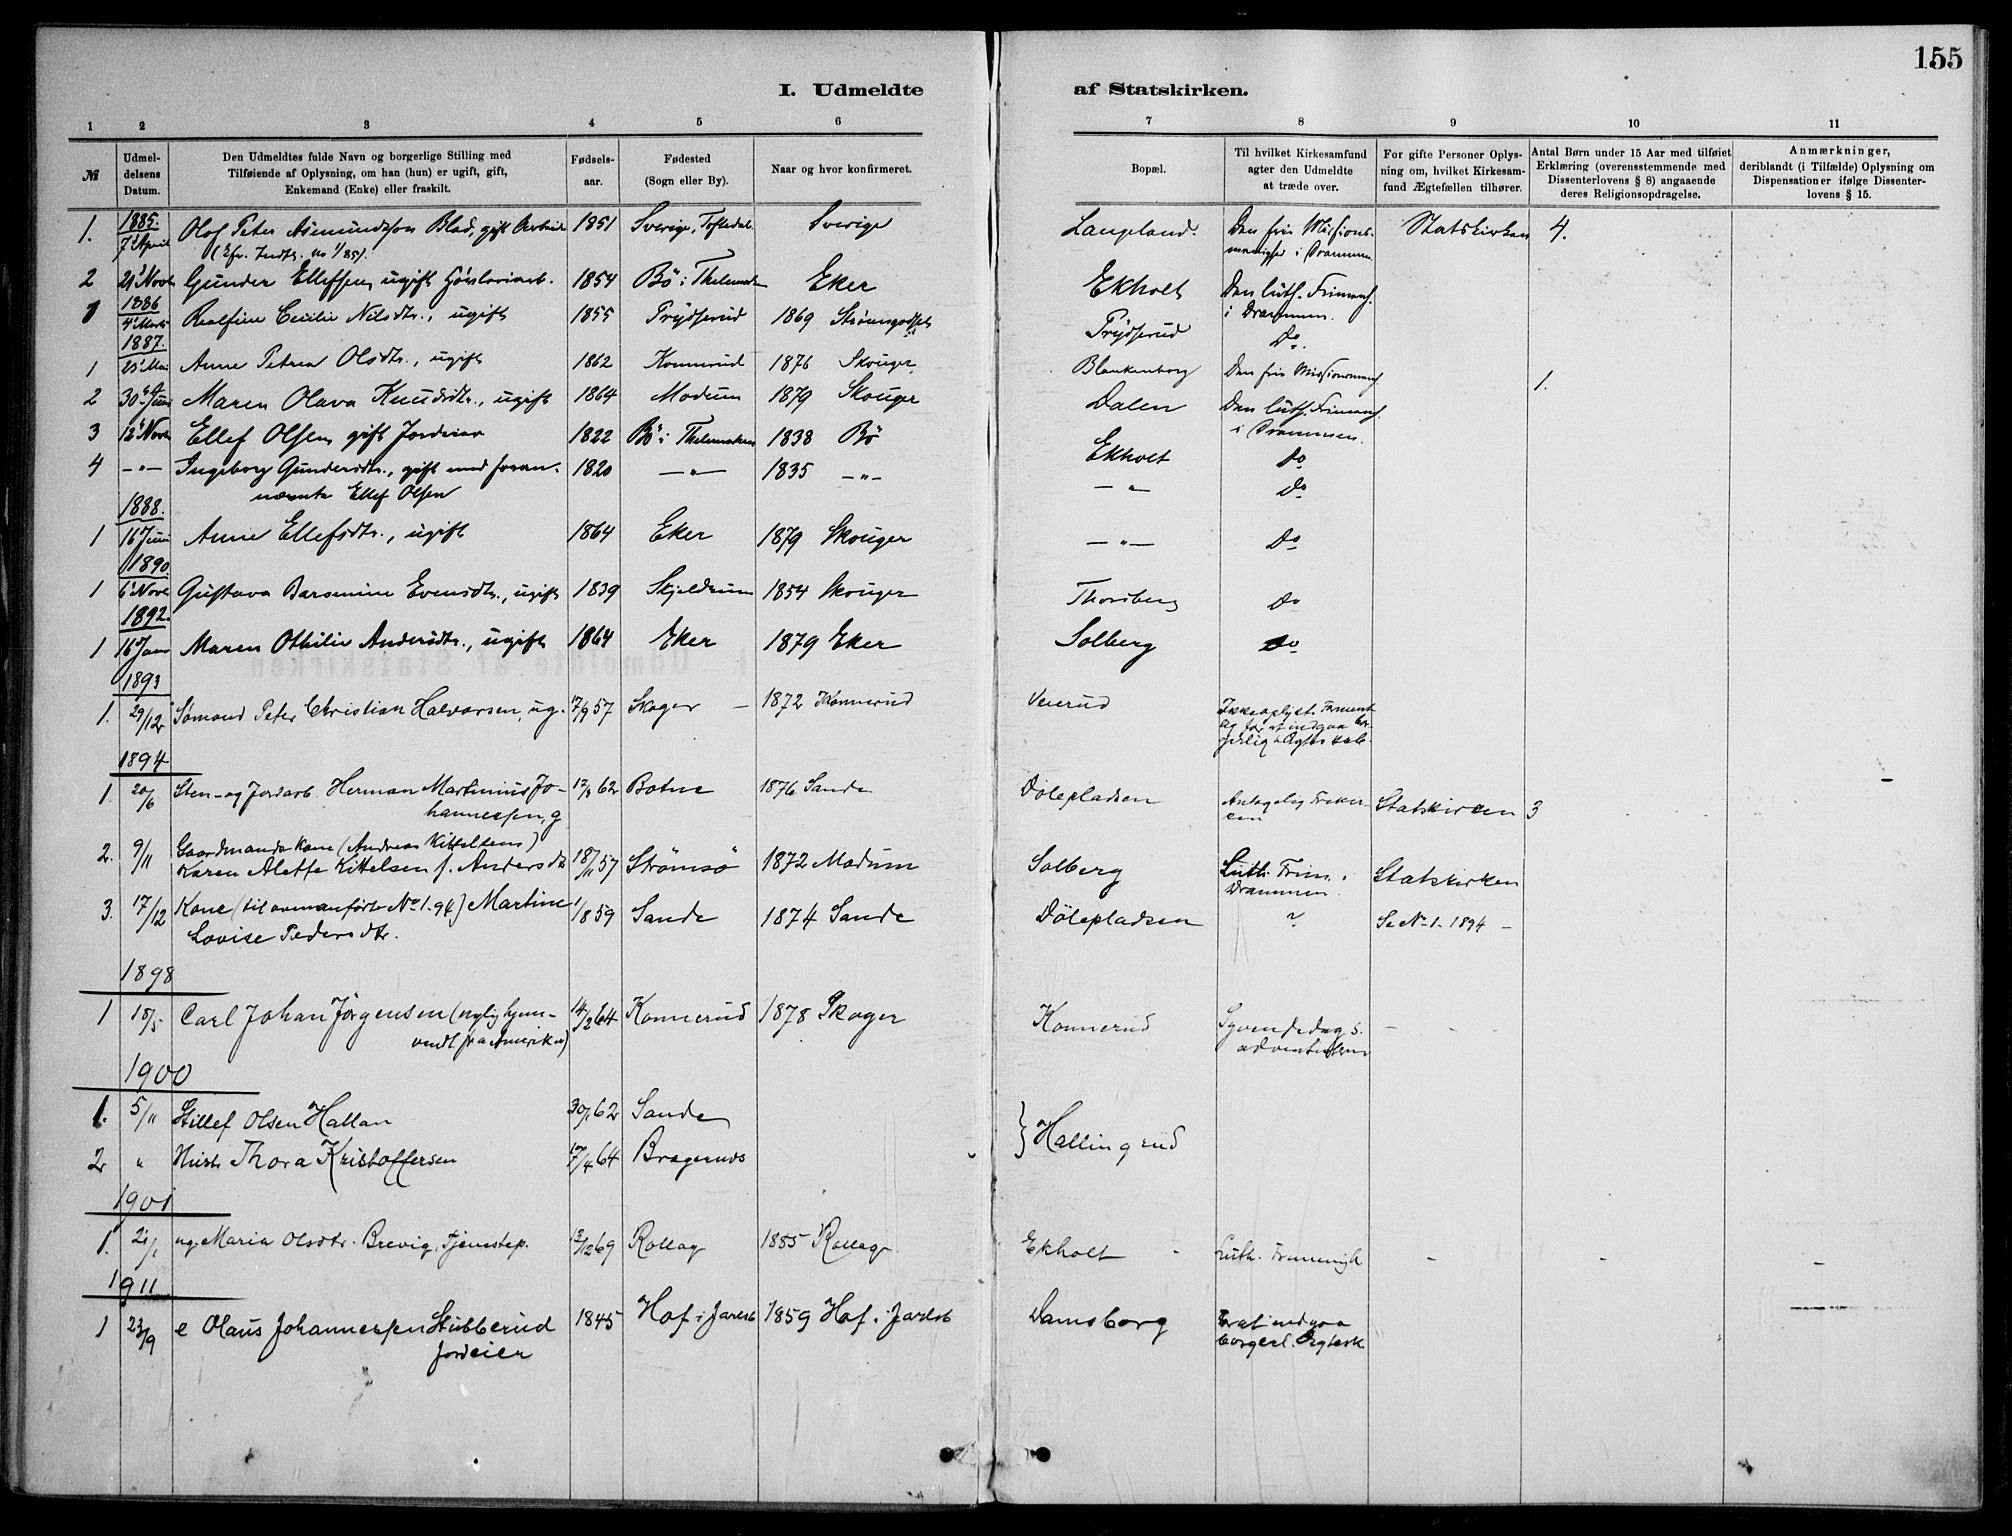 155
I. Udmeldte af Statskirken.
1 2 3 4 5 6 7 8 9 10 11
№
Udmeldelsens Datum.
Den Udmeldtes fulde Navn og borgerlige Stilling med
Tilføiende af Oplysning, om han (hun) er ugift, gift,
Enkemand (Enke) eller fraskilt.
Fødselsaar.
Fødested
(Sogn eller By).
Naar og hvor konfirmeret.
Bopæl.
Til hvilket Kirkesamfund
agter den Udmeldte
at træde over.
For gifte Personer Oplysning om, hvilket Kirkesamfund Ægtefællen tilhører.
Antal Børn under 15 Aar med tilføiet
Erklæring (overensstemmende med
Dissenterlovens § 8) angaaende
deres Religionsopdragelse.
Anmærkninger,
deriblandt (i Tilfælde) Oplysning om
Dispensationer ifølge Dissenterlovens § 15.
1885.
1. 7' April Olof Peter Asmundsson Blad, gift Arbeider 1851 Sverige, Toftedal Sverige Langeland. Den frie Missionsmenighed i Drammen Statskirken 4.
(Cfr. Indtr. no 1/85).
2 21' Novb Gunder Ellefsen ugift 1854 Bö i Thelemarken Eker Ekholt Den luth. Frimenh. i Drammen.
1886
1 4' Marts Realfine Cecilie Nilsdtr., ugift 1855 Prydserud 1869 Strømsgodset Prydserud Do.
1887.
1 25' Mai Anne Petrea Olsdtr., ugift 1862 Konnerud 1876 Skouger Blankenborg Den frie Missionsmenh 1.
2 30' Juni Maren Olava Knudsdtr., ugift 1864 Modum 1879 Skouger Dalen Den luth. Frimenh. i Drammen.
3 12' Novb Ellef Olsen gift Jordeier 1822 Bö i Thelemarken 1838 Bö Ekholt Do
4 —"— Ingeborg Gundersdtr., gift med forannævnte Ellef Olsen 1820 —"— 1835 —"— —"— Do
1888.
1 16' Juni Anne Ellefsdtr., ugift 1864 Eker 1879 Skouger —"— Do
1890.
1 6' Novb Gustava Barsemine Evensdtr., ugift 1839 Skjeldrum 1854 Skouger Thorsberg Do
1892.
1 16' Jan Maren Othilie Andersdtr., ugift 1864 Eker 1879 Eker Solberg Do
1893
1. 29/12 Sømand Peter Christian Halvorsen, ug. 17/9 57 Skoger — 1872 Konnerud Veierud Ikke oplyst.
1894
1. 20/6 Sten- og Jordarb. Herman Martinius Johannessen, g 17/3 62 Botne 1876 Sande Dölepladsen Antagelig Frikirken Statskirken 3
2. 9/11 Gaardmandskone (Andreas Kittelsens)
Karen Alette Kittelsen f. Andersdtr 18/11 57 Strömsö 1872 Modum Solberg Luth. Frim. i Drammen. Statskirken
3. 17/12 Kone (til ovenanførte No 1-94) Martine
Lovise Pedersdtr. 1/8 59 Sande 1874 Sande Dölepladsen ? Se No 1-1894 —
1898
1 18/5 Carl Johan Jörgensen (nylig hjemvendt fra Amerika) 14/2 64 Konnerud 1878 Skoger Konnerud Syvendedags adventisterne — —
1900
1. 5/11 Stillef Olsen Hallan 30/1 62 Sande } Hallingrud
2 " Hustr. Thora Kristoffersen 17/4 64 Bragernæs
1901
1. 21/1 ug. Maria Olsdtr. Brevig, Tjenestep. 12/12 69 Rollag 1885 Rollag Ekholt Luth. Frimenigh — — —
1911
1 23/9 e Olaus Johannessen Stubberud
Jordeier 1845 Hof i Jarlsb 1859 Hof i Jarlsb Damsborg For at indgaa borgerl. Ægtesk.